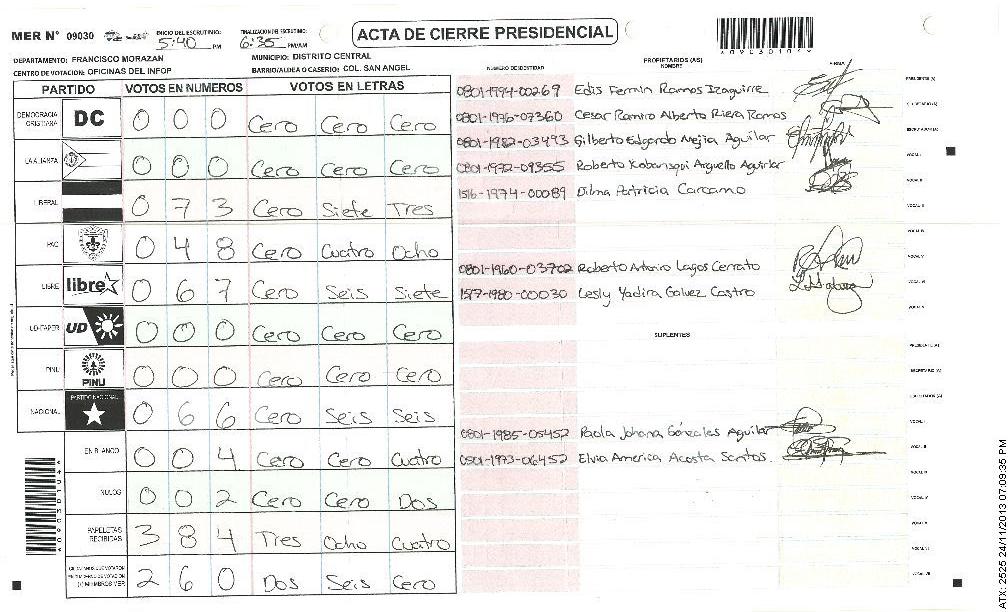 MER N° 09030 INICIO DEL ESCRUTINIO: 5:40 PM FINALIZACION DEL ESCRUTINIO: 6:35 PM/AM ACTA DE CIERRE PRESIDENCIAL
DEPARTAMENTO: FRANCISCO MORAZAN MUNICIPIO: DISTRITO CENTRAL
CENTRO DE VOTACION: OFICINAS DEL INFOP BARRIO/ALDEA O CASERIO: COL. SAN ANGEL
PARTIDO VOTOS EN NUMEROS VOTOS EN LETRAS
DEMOCRACIA CRISTIANA DC 0 0 0 Cero Cero Cero
LA ALIANZA 0 0 0 Cero Cero Cero
LIBERAL 0 7 3 Cero Siete Tres
PAC 0 4 8 Cero Cuatro Ocho
LIBRE libre 0 6 7 Cero Seis Siete
UD-FAPER UD 0 0 0 Cero Cero Cero
PINU PINU 0 0 0 Cero Cero Cero
NACIONAL PARTIDO NACIONAL 0 6 6 Cero Seis Seis
EN BLANCO 0 0 4 Cero Cero Cuatro
NULOS 0 0 2 Cero Cero Dos
PAPELETAS RECIBIDAS 3 8 4 Tres Ocho Cuatro
2 6 0 Dos Seis Cero
NUMERO DE IDENTIDAD PROPIETARIOS (AS) NOMBRE FIRMA
0801-1994-00269 Edis Fermin Ramos Izaguirre PRESIDENTE (A)
0801-1976-07360 Cesar Ramiro Alberto Riera Ramos
0801-1982-03493 Gilberto Edgardo Mejia Aguilar ESCRUTADOR (A)
0801-1972-09355 Roberto Arguello Aguilar VOCAL I
1516-1974-00089 Dilma Patricia Carcamo VOCAL II
VOCAL III
VOCAL IV
0801-1960-03702 Roberto Antonio Lagos Cerrato VOCAL V
1517-1980-00030 Lesly Yadira Galvez Castro VOCAL VI
SUPLENTES
PRESIDENTE (A)
SECRETARIO (A)
ESCRUTADOR (A)
0801-1985-05452 Paola Johana Gonzales Aguilar VOCAL I
0501-1973-06452 Elvia America Acosta Santos VOCAL II
VOCAL III
VOCAL IV
VOCAL V
VOCAL VI
VOCAL VII
ATX: 2525 24/11/2013 07:09:35 PM